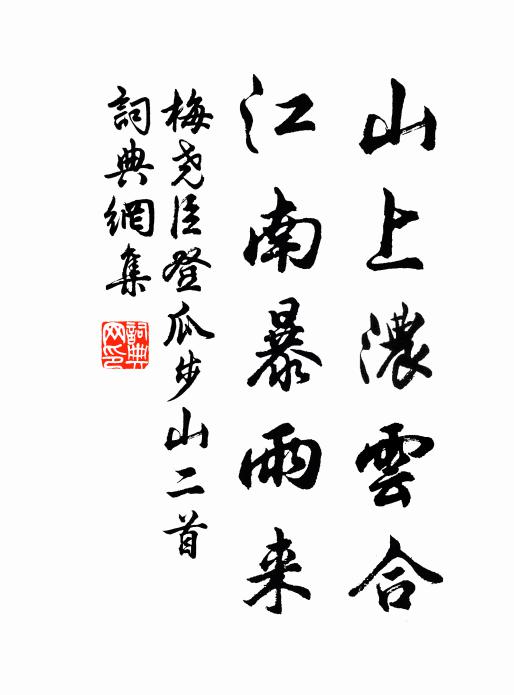 山上濃雲合
江南暴雨来
梅尧臣登瓜步山二首
詞典網集
詞典网印